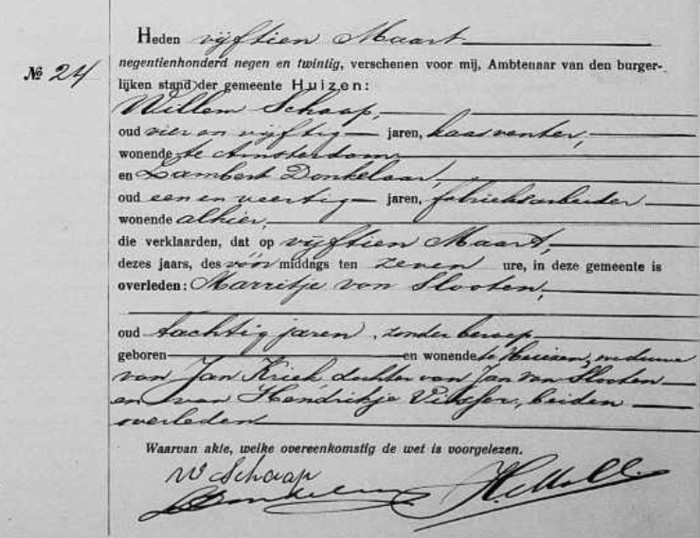 Heden vijftien Maart
№ 24
negentienhonderd negen en twintig, verschenen voor mij, Ambtenaar van den burger-
lijken stand der gemeente Huizen:
Willem Schaap,
oud vier en vijftig jaren, kaasventer,
wonende te Amsterdam,
en Lambert Donkelaar,
oud een en veertig jaren, fabrieksarbeider
wonende alhier,
die verklaarden, dat op vijftien Maart,
dezes jaars, des vóór middags ten zeven ure, in deze gemeente is
overleden: Marritje van Slooten,
oud tachtig jaren, zonder beroep,
geboren en wonende te Huizen, weduwe
van Jan Kriek, dochter van Jan van Slooten
en van Hendrikje Visser, beiden
overleden
Waarvan akte, welke overeenkomstig de wet is voorgelezen.
W Schaap